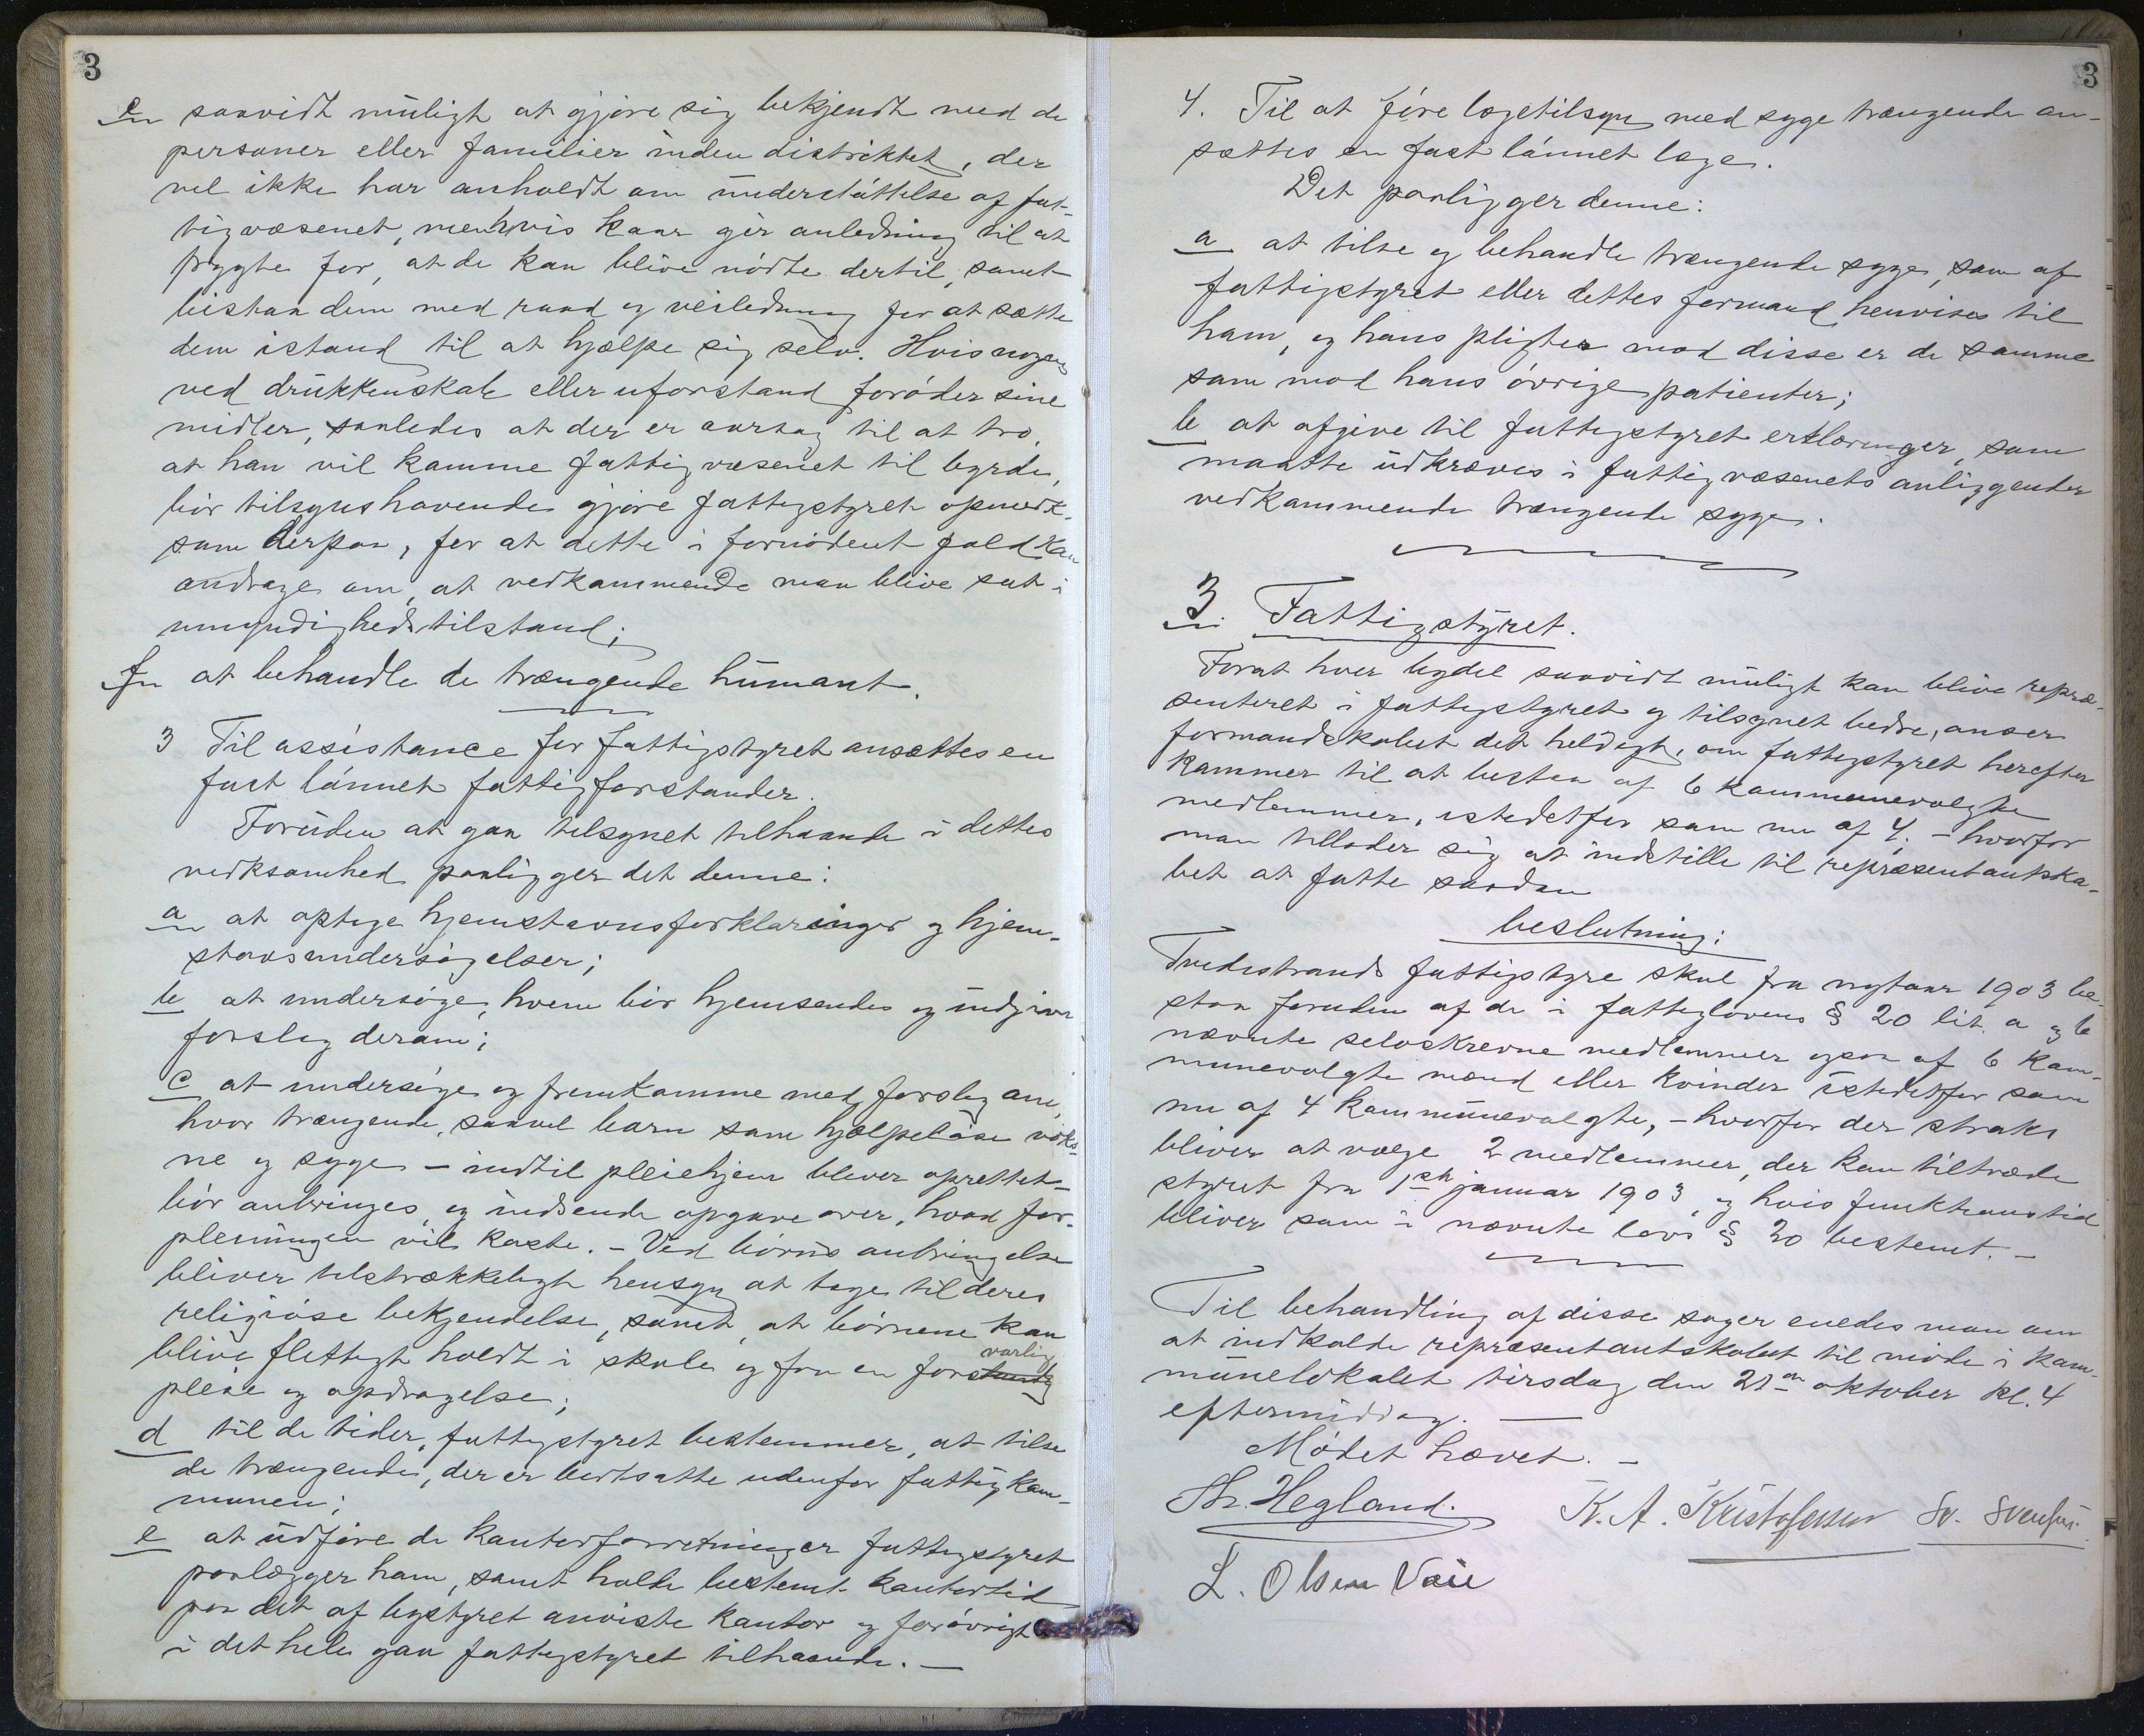 3
e saavidt muligt at gjøre sig bekjendt med de
personer eller familier inden distriktet, der
vel ikke har anholdt om understøttelse af fat-
tigvæsenet, men hvis kaar gir anledning til at
frygte for, at de kan blive nødte dertil, samt
bistaa dem med raad og veiledning for at sætte
dem istand til at hjælpe sig selv. Hvis nogen
ved drukkenskab eller uforstand forøder sine
midler, saaledes at der er aarsag til at tro,
at han vil komme fattigvæsenet til byrde,
bør tilsynshavende gjøre fattigstyret opmerk-
som derpaa, for at dette i fornødent fald kan
andrage om, at vedkommende maa blive sat i
umyndighedstilstand;
f at behandle de trængende humant.
3 Til assistance for fattigstyret ansættes en
fast lønnet fattigforstander.
Foruden at gaa tilsynet tilhaande i dettes
virksomhed paaligger det denne:
a at optage hjemstavnsforklaringer og hjem-
stavnsundersøgelser;
b at undersøge, hvem bør hjemsendes og indgive
forslag derom;
c at undersøge og fremkomme med forslag om,
hvor trængende, saavel barn som hjælpeløse voks-
ne og syge – indtil pleiehjem bliver oprettet –
bør anbringes, og indsende opgave over, hvad for-
pleiningen vil koste. – Ved børns anbringelse
bliver tilstrækkeligt hensyn at tage til deres
religiøse bekjendelse, samt, at børnene kan
blive flittigt holdt i skole og faa en forstandig varlig
pleie og opdragelse;
d til de tider, fattigstyret bestemmer, at tilse
de trængende, der er bortsatte udenfor fattigkom-
munen;
e at udføre de kontorforretninger fattigstyret
paalægger ham, samt holde bestemt kontortid
paa det af bystyret anviste kontor og forøvrigt
i det hele gaa fattigstyret tilhaande. –
3
4. Til at føre lægetilsyn med syge trængende an-
sættes en fast lønnet læge.
Det paaligger denne:
a at tilse og behandle trængende syge, som af
fattigstyret eller dettes formand henvises til
ham, og hans pligter mod disse er de samme
som mod hans øvrige patienter;
b at afgive til fattigstyret erklæringer, som
maatte udkræves i fattigvæsenets anliggender
vedkommende trængende syge.
3. Fattigstyret.
Forat hver bydel saavidt muligt kan blive repræ-
senteret i fattigstyret og tilsynet bedre, anser
formandskabet det heldigt, om fattigstyret herefter
kommer til at bestaa af 6 kommunevalgte
medlemmer, istedetfor som nu af 4. – hvorfor
man tillader sig at indstille til repræsentantska-
bet at fatte saadan
beslutning:
Tvedestrands fattigstyre skal fra nytaar 1903 be-
staa foruden af de i fattiglovens § 20 lit. a og b
nævnte selvskrevne medlemmer ogsaa af 6 kom-
munevalgte mænd eller kvinder istedetfor som
nu af 4 kommunevalgte, – hvorfor der straks
bliver at vælge 2 medlemmer, der kan tiltræde
styret fra 1ste januar 1903, og hvis funktionstid
bliver som i nævnte lovs § 20 bestemt. –
Til behandling af disse sager enedes man om
at indkalde repræsentantskabet til møde i kom-
munelokalet tirsdag den 21de oktober kl. 4
eftermiddag. –
Mødet hævet. –
Chr. Hegland. K. A. Kristofersen Sv. Svensen.
L. Olsen Vaie